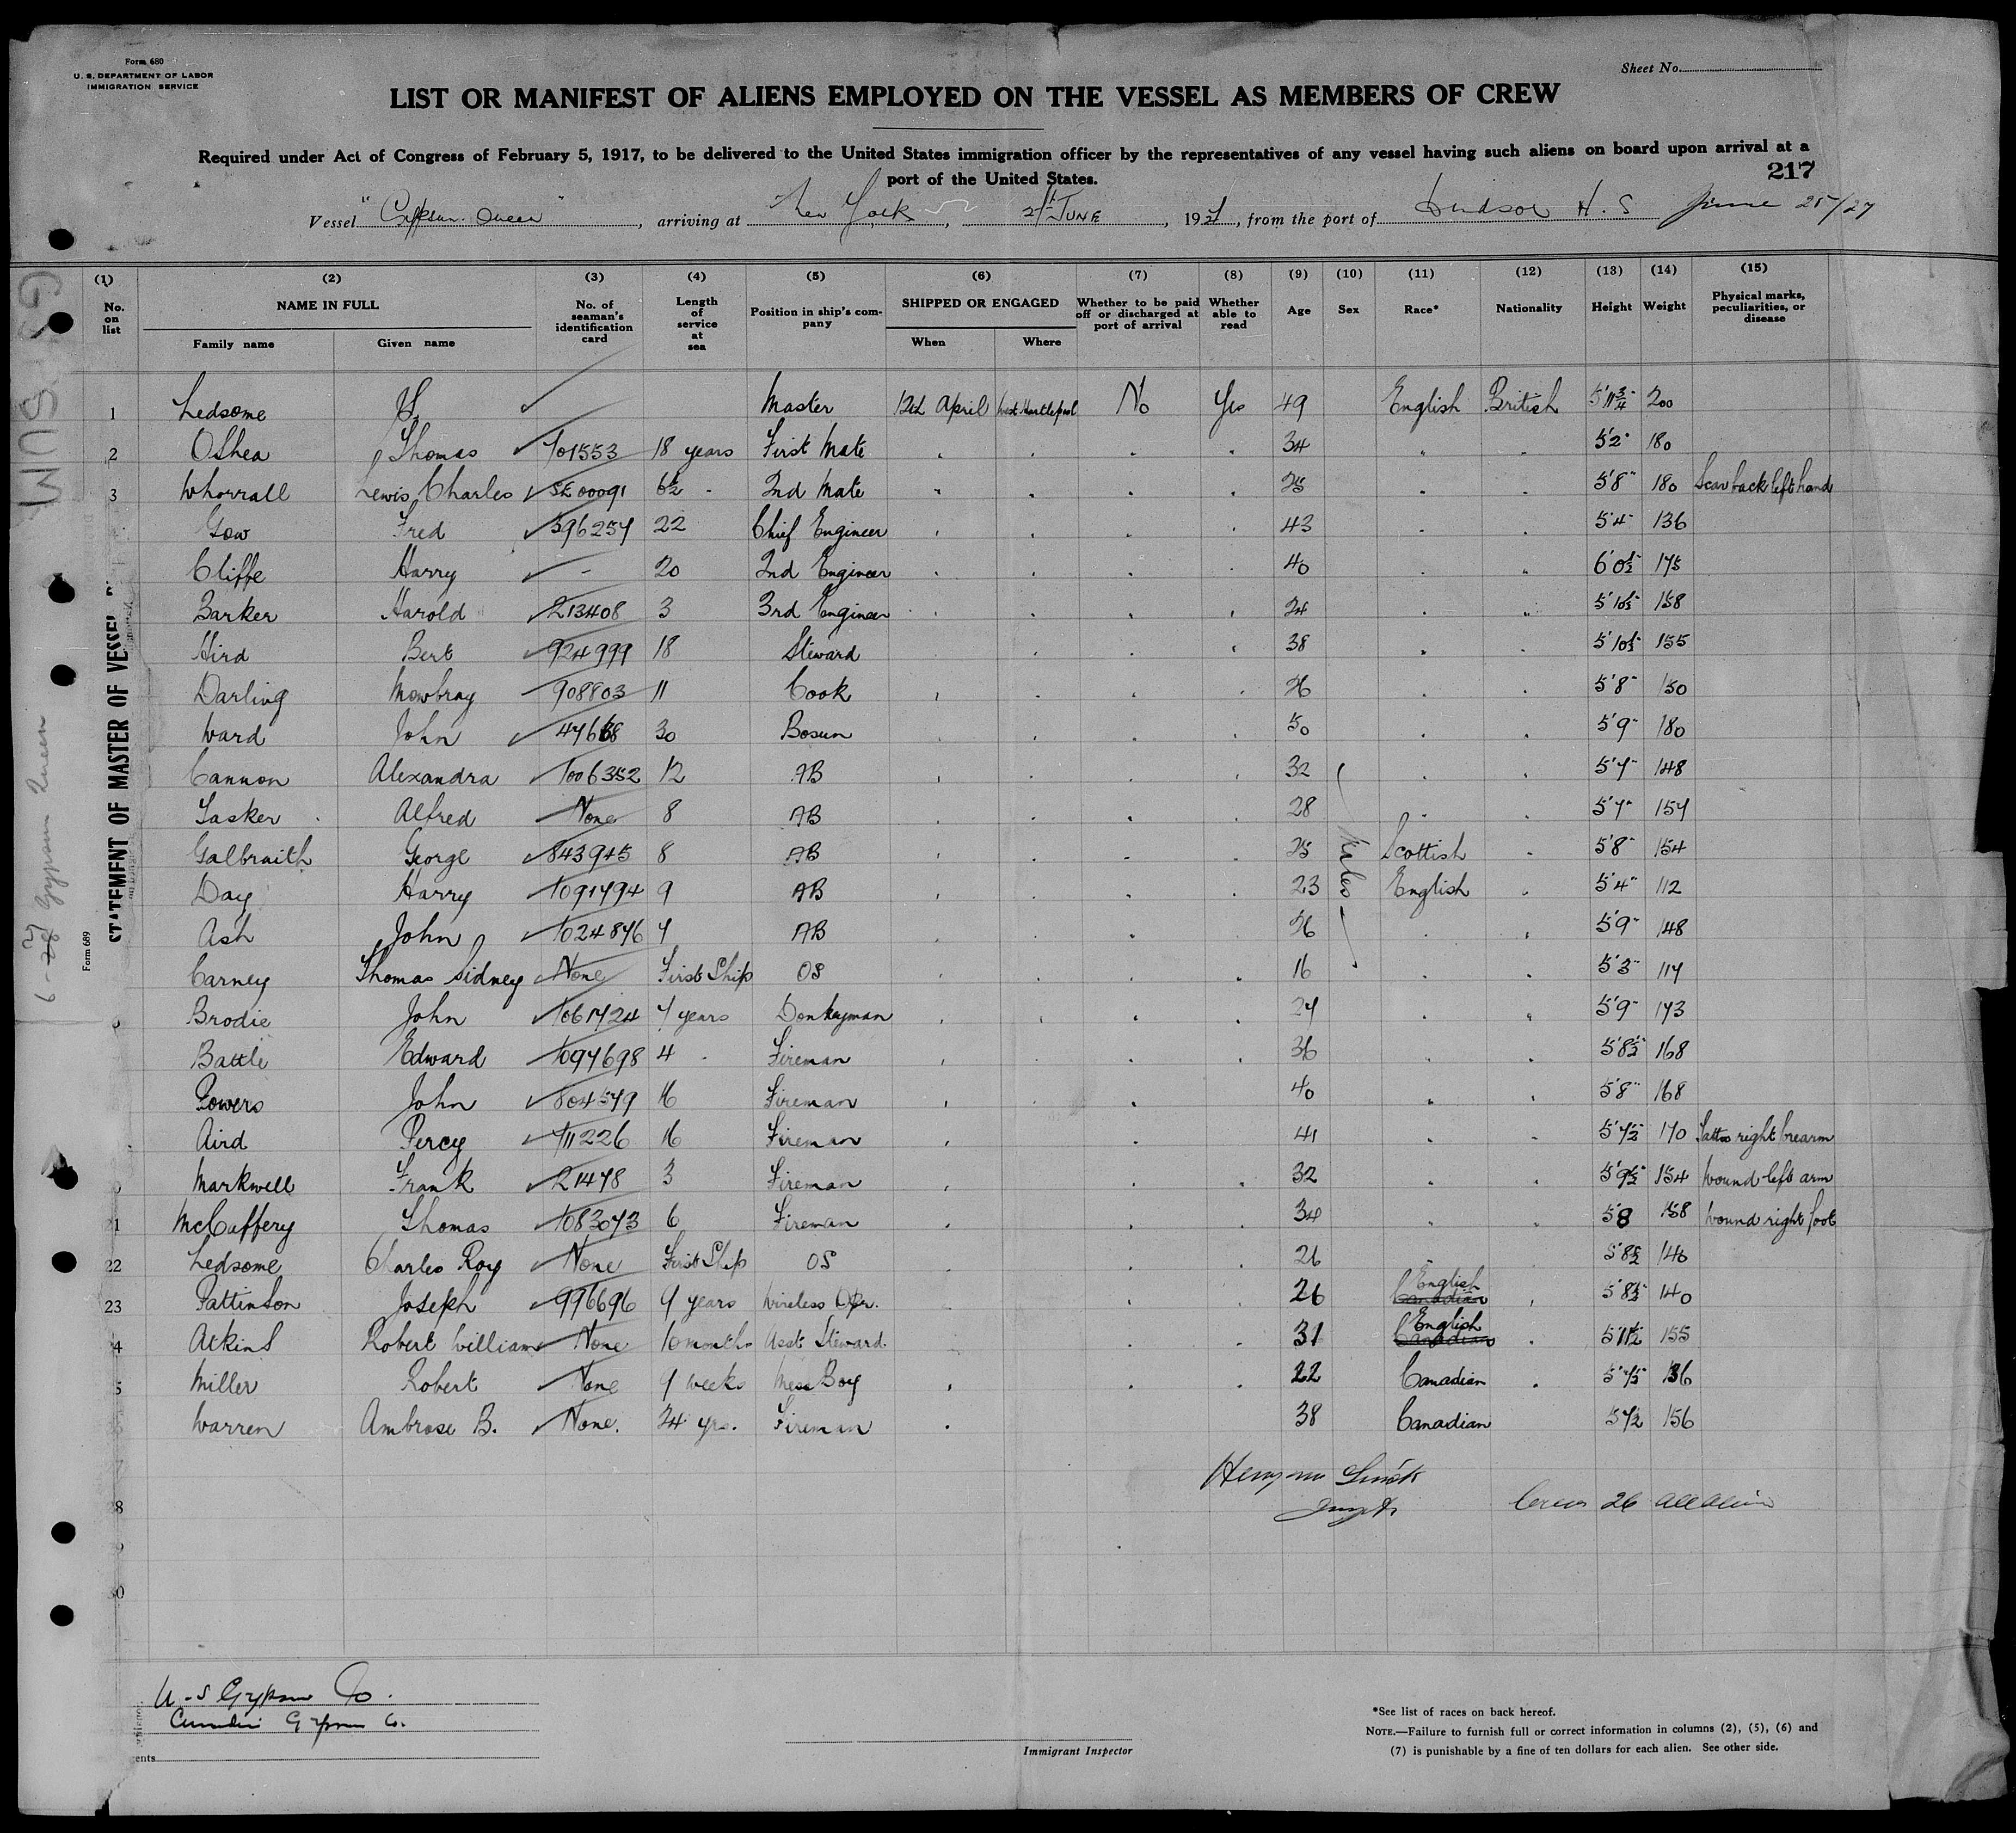 Form 680
U. S. DEPARTMENT OF LABOR
IMMIGRATION SERVICE
Sheet No.
LIST OR MANIFEST OF ALIENS EMPLOYED ON THE VESSEL AS MEMBERS OF CREW
Required under Act of Congress of February 5, 1917, to be delivered to the United States immigration officer by the representatives of any vessel having such aliens on board upon arrival at a
port of the United States.
217
Vessel "Gypsum Queen", arriving at New York, JUNE, 1927, from the port of Windsor N. S June 25/27
(1) (2) (3) (4) (5) (6) (7) (8) (9) (10) (11) (12) (13) (14) (15)
No. on list NAME IN FULL No. of seaman's identification card Length of service at sea Position in ship's company SHIPPED OR ENGAGED Whether to be paid off or discharged at port of arrival Whether able to read Age Sex Race* Nationality Height Weight Physical marks, peculiarities, or disease
Family name Given name When Where
1 Ledsome Master 12th April West Hartlepool No Yes 49 English British 5'11¾" 200
2 OShea Thomas 701553 18 years First Mate 34 5'2" 180
3 Whorrall Lewis Charles SE00091 6½ 2nd Mate 25 5'8" 180 Scar back left hand
Gow Fred 596257 22 Chief Engineer 43 5'4" 136
Cliffe Harry - 20 2nd Engineer 40 6'0½" 175
Barker Harold 213408 3 3rd Engineer 24 5'10½" 158
Hird Bert 924999 18 Steward 38 5'10½" 155
Darling Mowbray 908803 11 Cook 26 5'8" 150
Ward John 30 Bosun 50 5'9" 180
Cannon Alexandra 1006352 12 AB 32 5'7" 148
Tasker Alfred None 8 AB 28 5'7" 157
Galbraith George 843945 8 AB 25 Males Scottish 5'8" 154
Day Harry 1091794 9 AB 23 English 5'4" 112
Ash John 1024876 7 AB 26 5'9" 148
Carney Thomas Sidney None First Ship OS 16 5'3" 117
Brodie John 1061724 7 years Donkeyman 27 5'9" 173
Battle Edward 1097698 4 Fireman 36 5'8½" 168
Powers John 804579 16 Fireman 40 5'8" 168
Aird Percy 711226 16 Fireman 41 5'7½" 170 Tattoo right forearm
Markwell Frank 21478 3 Fireman 32 5'9½" 154 Wound left arm
21 McCuffery Thomas 1083073 6 Fireman 34 5'8 158 Wound right foot
22 Ledsome Charles Roy None First Ship OS 26 5'8½ 140
23 Pattinson Joseph 996696 9 years Wireless Opr. 26 English Canadian 5'8½ 140
4 Atkins Robert William None 10 months Asst Steward. 31 English Canadian 5'11½ 155
5 Miller Robert None 9 weeks Mess Boy 22 Canadian 136
Warren Ambrose B. None. 24 yrs. Fireman 38 Canadian 5 7½ 156
28 Crew 26 all alien
30
U-S Gypsum Co.
Canadian Gypsum Co.
ents
Immigrant Inspector
*See list of races on back hereof.
NOTE.—Failure to furnish full or correct information in columns (2), (5), (6) and
(7) is punishable by a fine of ten dollars for each alien. See other side.
STATEMENT OF MASTER OF VESSEL
Form 689
Gypsum Queen
GYPSUM